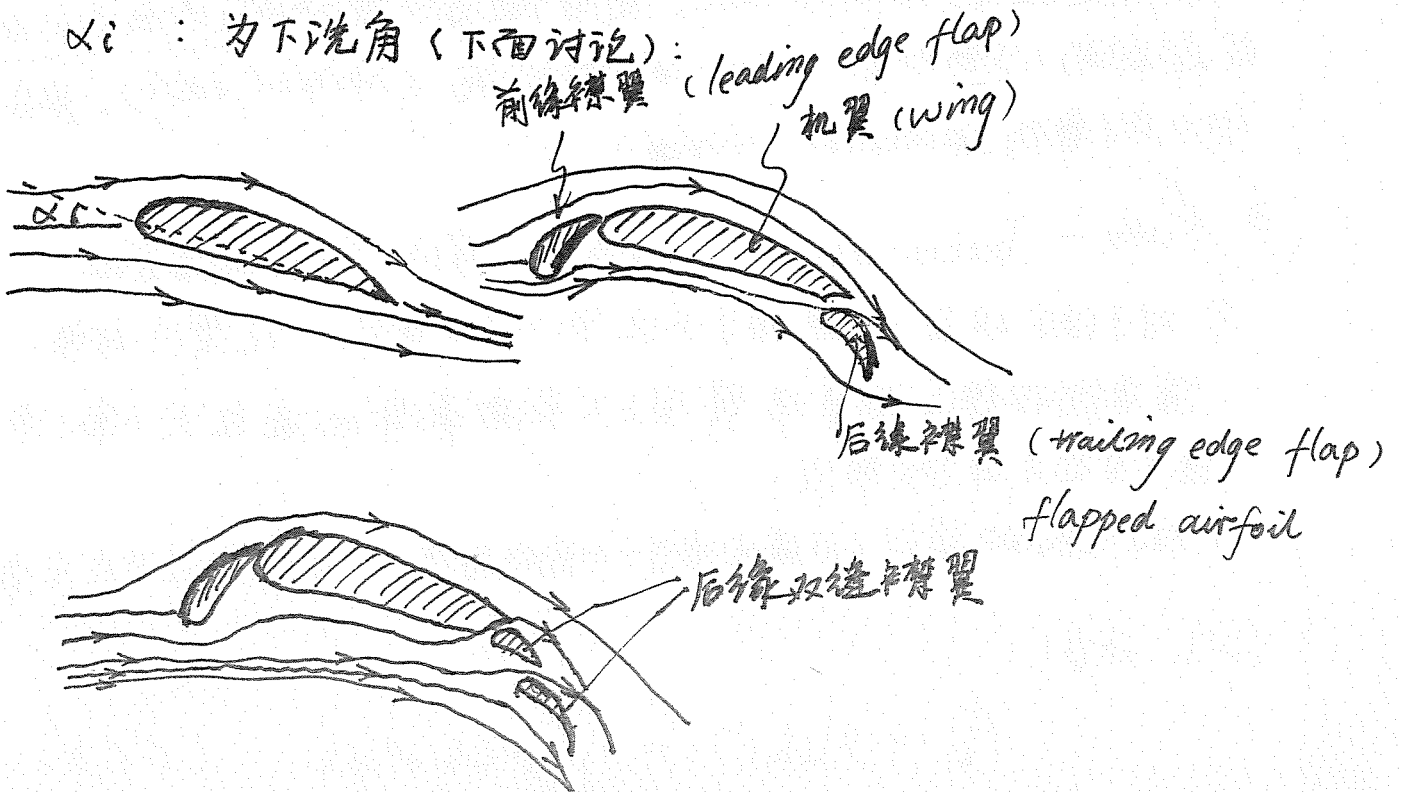 αi : 为下洗角 (下面讨论):
前缘襟翼 (leading edge flap)
机翼 (wing)
αi
后缘襟翼 (trailing edge flap)
flapped airfoil
后缘双缝襟翼